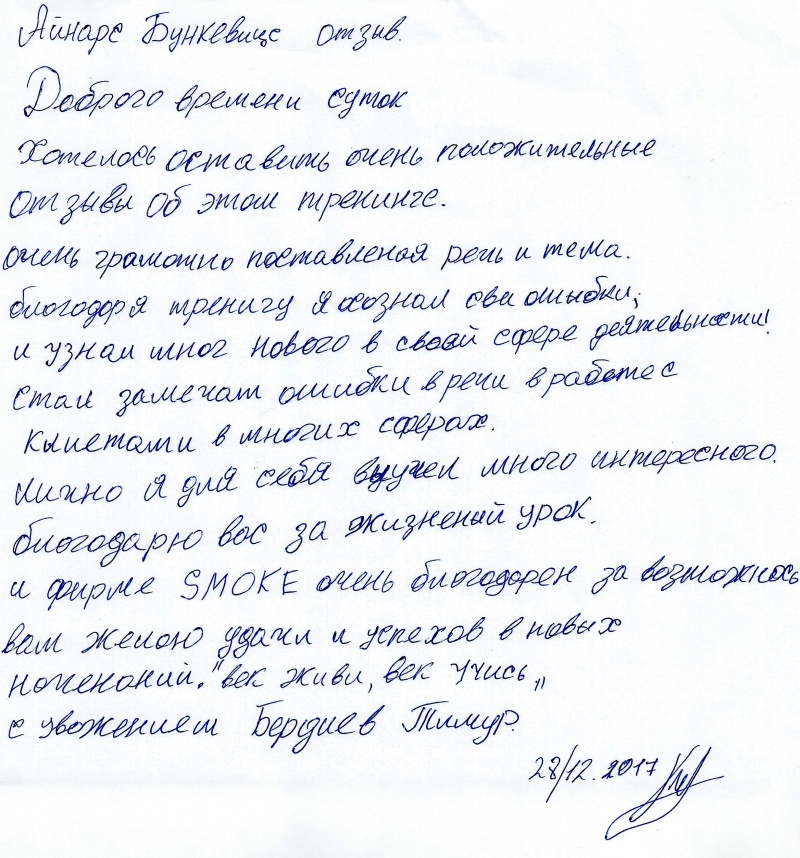 Айнарс Бункевицс отзыв.
Доброго времени суток
Хотелось оставить очень положительные
отзывы об этом тренинге.
очень грамотно поставленая речь и тема.
благодоря тренигу я осознал сви ошыбки,
и узнал мног нового в своей сфере деятельности!
стал замечат ошибки в речи в работе с
клиетами в многих сферах.
лично я для себя выучел много интересного.
благодарю вас за жизненый урок.
и фирме SMOKE очень благодорен за возможнось
вам желою удачи и успехов в новых
ночененаний. "век живи, век учись„
с увожением Бердиев Тимур.
28/12.2017